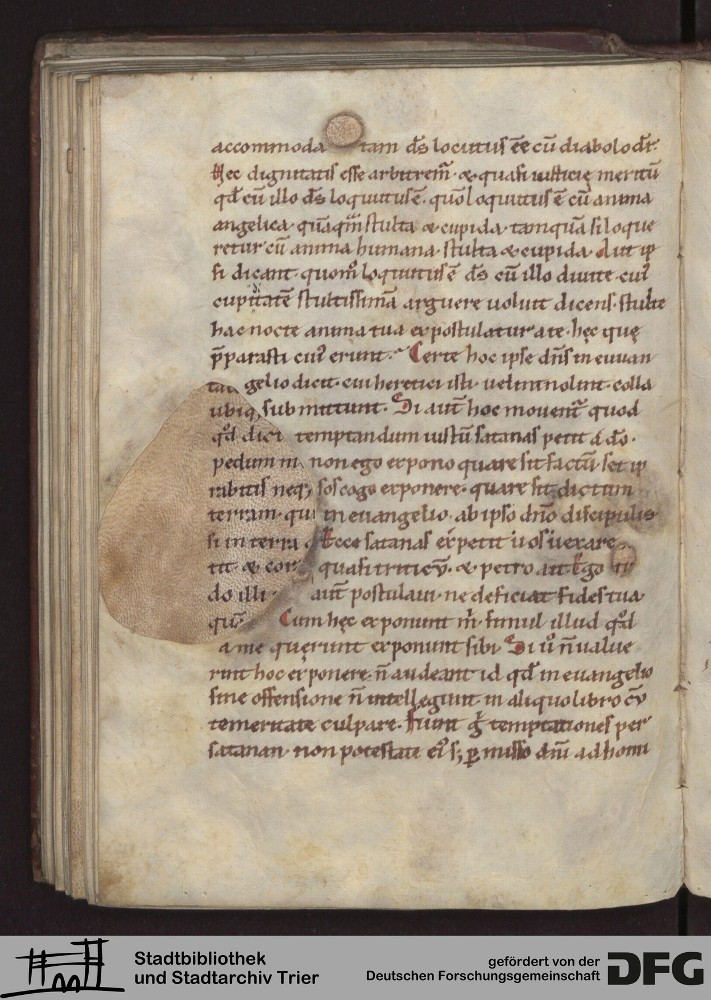 accommoda tam d̄s locutus eē cū diabolo dr̄.
Nec dignitatis esse arbitrem̄ & quasi iusticię meritū
qd̄ cū illo d̄s loquutus ē. quō loquutus ē cū anima
angelica. quāqm̄ stulta & cupida. tamquā si loque
retur cū anima humana. stulta & cupida. Aut ip
si dicant. quom̄ loquutus ē d̄s cū illo diuite. cui᷒
cupitatē stultissimā arguere uoluit dicens. stulte
hac nocte anima tua expostulatur a te. hęc quę
p̄parasti cui᷒ erunt. Certe hoc ipse dn̄s in euuan
gelio dicit. cui heretici isti. uelint nolint. colla
ubiq; submittunt. Si aut̄ hoc mouent᷑ quod
qd̄ dici temptandum iustū satanas petit a do̅.
pedum in non ego expono quare sit factū. set ip
rabitis neq; sos cogo exponere. quare sit dictum
terram. qui in euangelio. ab ipso dn̄o discipulis
si in terra Ecce satanas expetit uos uexare
tit & cor quasi triticū. & petro ait Ego
do illi. aut̄ postulaui. ne deficiat fides tua
Cum hęc exponunt m̄. simul illud qd̄
a me quęrunt exponunt sibi. Si u͛ n̄ ualue
rint hoc exponere. n̄ audeant id qd̄ in euangelio
sine offensione n̄ intellegunt in aliquo libro cū
temeritate culpare. Fiunt g̊ temptationes per
satanan. non potestate ei᷒ s; p̱ misso dn̄i ad homi
Stadtbibliothek
und Stadtarchiv Trier
gefördert von der
Deutschen Forschungsgemeinschaft
DFG